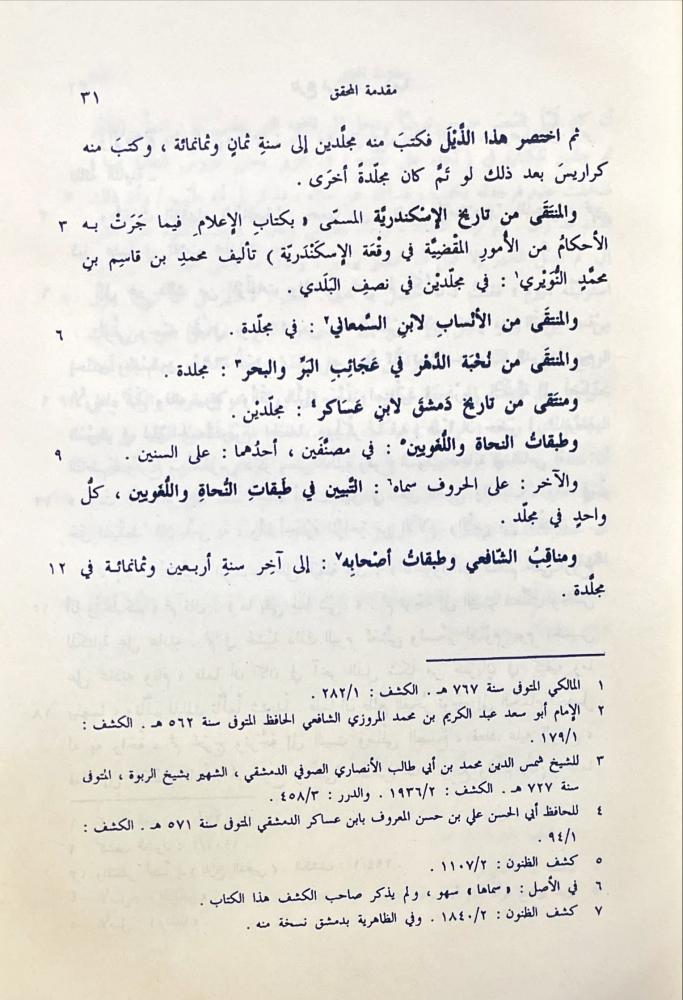 مقدمة المحقق ٣١
ثم اختصر هذا الذَّيْلَ فكتبَ منه مجلَّدين إلى سنةِ ثمانٍ وثمانمائة ، وكتبَ منه
كراريسَ بعد ذلك لو تَمَّ كان مجلّدةً أخرَى .
والمنتَقَى من تاريخ الإسْكندريّة المسمّى « بكتابِ الإعلام فيما جَرَتْ به ٣
الأحكامُ من الأُمورِ المَقْضِيَّة في وقْعَة الإسكَنْدَريّة ) تأليف محمدِ بن قاسِم بنِ
محمَّدٍ النُّوَيْري١ : في مجلّديْن في نصفِ البَلَدي .
والمنتقَى من الأنْسابِ لابنِ السِّمعاني٢ : في مجلّدة . ٦
والمنتقَى مَن نُخْبَة الدَّهْر في عَجَائبِ البَرِّ والبحر٣ : مجلدة .
ومنتَقى من تاريخ دَمشقَ لابنِ عَسَاكر٤ : مجلّدين .
وطبقاتُ النحاة واللُّغويين٥ : في مصنَّفَين ، أحدُهما : على السنين . ٩
والآخر : على الحروف سماه٦ : التَّبيين في طَبقاتِ النُّحاةِ واللُّغويين ، كلُّ
واحدٍ في مجلَّد .
ومناقبُ الشّافعي وطبقاتُ أصْحابِه٧ : إلى آخِر سنةِ أربعين وثمانمائة في ١٢
مجلَّدة .
١ المالكي المتوفى سنة ٧٦٧ هـ . الكشف : ٢٨٢/١ .
٢ الإمام أبو سعد عبد الكريم بن محمد المروزي الشافعي الحافظ المتوفى سنة ٥٦٢ هـ . الكشف :
١٧٩/١ .
٣ للشيخ شمس الدين محمد بن أبي طالب الأنصاري الصوفي الدمشقي ، الشهير بشيخ الربوة ، المتوفى
سنة ٧٢٧ هـ . الكشف : ١٩٣٦/٢ . والدرر : ٤٥٨/٣ .
٤ للحافظ أبي الحسن علي بن حسن المعروف بابن عساكر الدمشقي المتوفى سنة ٥٧١ هـ . الكشف :
٩٤/١ .
٥ كشف الظنون : ١١٠٧/٢ .
٦ في الأصل : « سماها » سهو ، ولم يذكر صاحب الكشف هذا الكتاب .
٧ كشف الظنون : ١٨٤٠/٢ . وفي الظاهرية بدمشق نسخة منه .